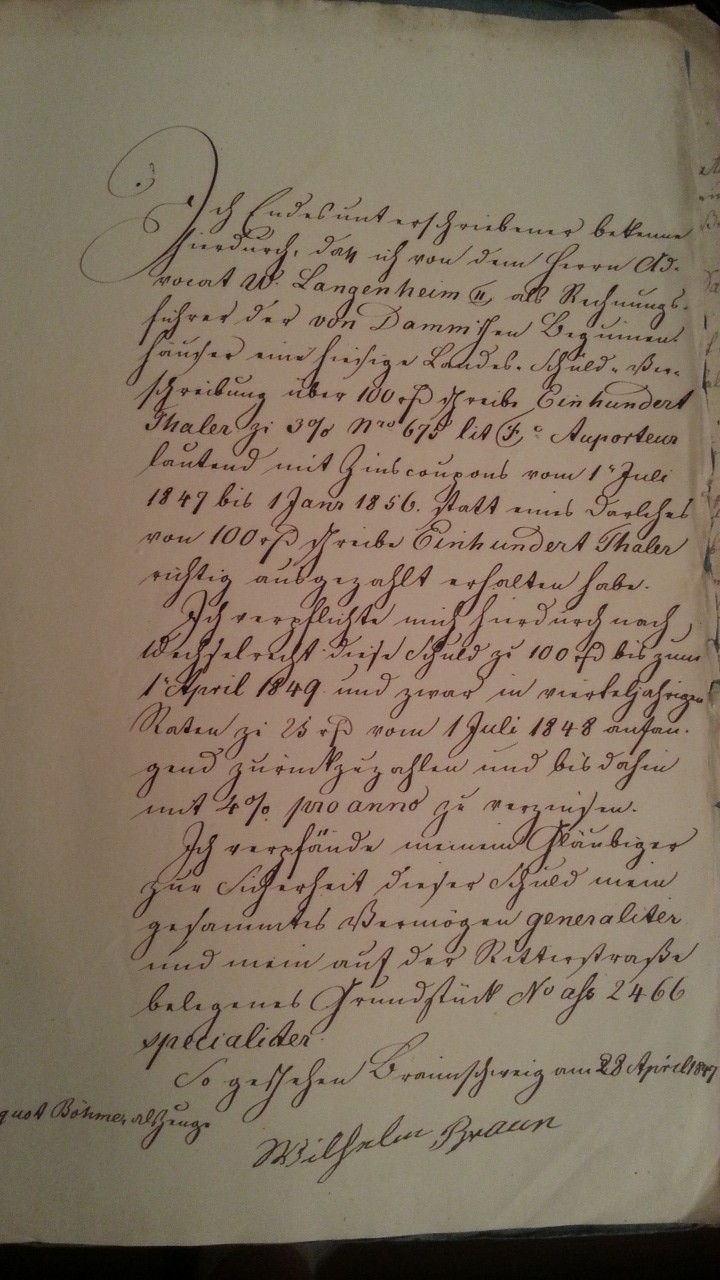 Ich Endesunterschriebener bekenne
hierdurch, daß ich von dem Herrn Ad-
vocat W. Langenheim II, als Rechnungs-
führer der von Dammschen Beguinen-
häuser eine hiesige Landes-Schuld-Ver-
schreibung über 100 rß schreibe Einhundert
Thaler zu 3% Nro 675 lit F, Auporteur
lautend mit Zinscoupons vom 1n Juli
1847 bis 1 Janr 1856. statt eines Darlehes
von 100 rß schreibe Einhundert Thaler
richtig ausgezahlt erhalten habe.
Ich verpflichte mich hierdurch nach
Wechselrecht diese Schuld zu 100 rß bis zum
1n April 1849 und zwar in vierteljährigen
Raten zu 25 rß vom 1 Juli 1848 anfan-
gend zurückzuzahlen und bis dahin
mit 4% pro anno zu verzinsen.
Ich verpfände meinem Gläubiger
zur Sicherheit dieser Schuld mein
gesammtes Vermögen generaliter
und mein auf der Ritterstraße
belegenes Grundstück No ass 2466
specialiter.
So geschehen Braunschweig am 28 April 1847
quot Böhmer, als Zeuge
Wilhelm Braun